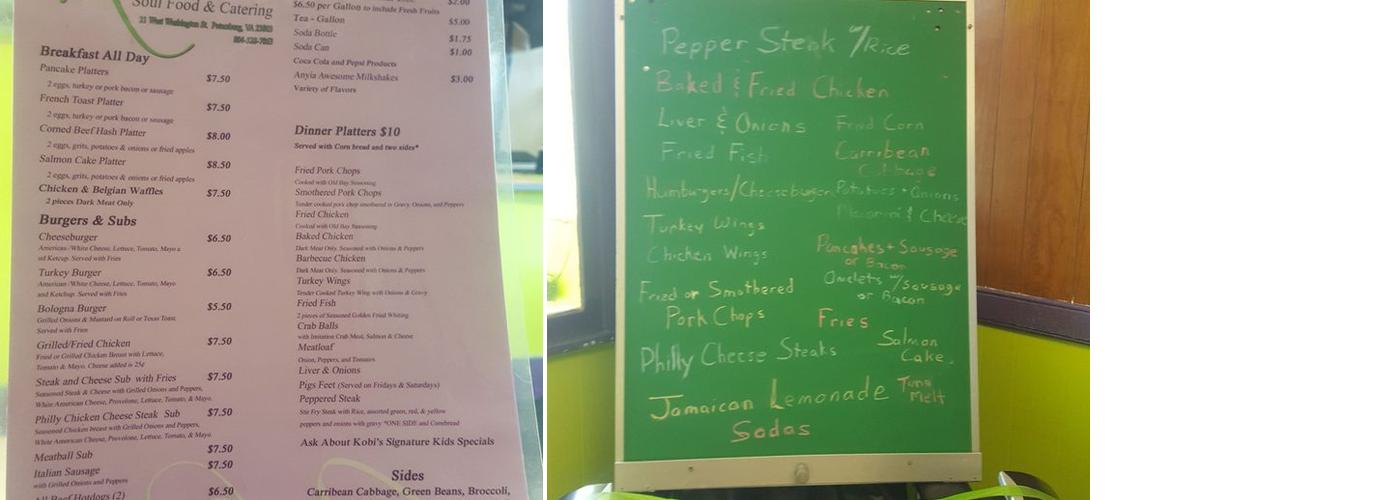 Soul Food & Catering
21 West Washington St. Petersburg, VA 23803
Breakfast All Day
Pancake Platters $7.50
2 eggs, turkey or pork bacon or sausage
French Toast Platter $7.50
2 eggs, turkey or pork bacon or sausage
Corned Beef Hash Platter $8.00
2 eggs, grits, potatoes & onions or fried apples
Salmon Cake Platter $8.50
2 eggs, grits, potatoes & onions or fried apples
Chicken & Belgian Waffles $7.50
2 pieces Dark Meat Only
Burgers & Subs
Cheeseburger $6.50
American/White Cheese, Lettuce, Tomato, Mayo a
nd Ketcup. Served with Fries
Turkey Burger $6.50
American/White Cheese, Lettuce, Tomato, Mayo
and Ketchup. Served with Fries
Bologna Burger $5.50
Grilled Onions & Mustard on Roll or Texas Toast.
Served with Fries
Grilled/Fried Chicken $7.50
Fried or Grilled Chicken Breast with Lettuce,
Tomato & Mayo. Cheese added is 25¢
Steak and Cheese Sub with Fries $7.50
Seasoned Steak & Cheese with Grilled Onions and Peppers,
White American Cheese, Provolone, Lettuce, Tomato, & Mayo.
Philly Chicken Cheese Steak Sub $7.50
Seasoned Chicken breast with Grilled Onions and Peppers,
White American Cheese, Provolone, Lettuce, Tomato, & Mayo
Meatball Sub $7.50
Italian Sausage $7.50
with Grilled Onions and Peppers
All Beef Hotdogs (2) $6.50
$2.00
$6.50 per Gallon to include Fresh Fruits
Tea - Gallon $5.00
Soda Bottle $1.75
Soda Can $1.00
Coca Cola and Pepsi Products
Anyia Awesome Milkshakes $3.00
Variety of Flavors
Dinner Platters $10
Served with Corn bread and two sides*
Fried Pork Chops
Cooked with Old Bay Seasoning
Smothered Pork Chops
Tender cooked pork chop smothered in Gravy, Onions, and Peppers
Fried Chicken
Cooked with Old Bay Seasoning
Baked Chicken
Dark Meat Only. Seasoned with Onions & Peppers
Barbecue Chicken
Dark Meat Only. Seasoned with Onions & Peppers
Turkey Wings
Tender Cooked Turkey Wing with Onions & Gravy
Fried Fish
2 pieces of Seasoned Golden Fried Whiting
Crab Balls
with Imitation Crab Meat, Salmon & Cheese
Meatloaf
Onion, Peppers, and Tomatoes
Liver & Onions
Pigs Feet (Served on Fridays & Saturdays)
Peppered Steak
Stir Fry Steak with Rice, assorted green, red, & yellow
peppers and onions with gravy *ONE SIDE and Cornbread
Ask About Kobi's Signature Kids Specials
Sides
Carribean Cabbage, Green Beans, Broccoli,
Pepper Steak w/Rice
Baked & Fried Chicken
Liver & Onions
Fried Fish
Humburgers/Cheeseburger
Turkey Wings
Chicken Wings
Fried or Smothered
Pork Chops
Philly Cheese Steaks
Fried Corn
Carribean
Cabbage
Potatoes + Onions
Macaroni & Cheese
Pancakes + Sausage
or Bacon
Omelets w/Sausage
or Bacon
Fries
Salmon
Cake.
Tuna
Melt
Jamaican Lemonade
Sodas